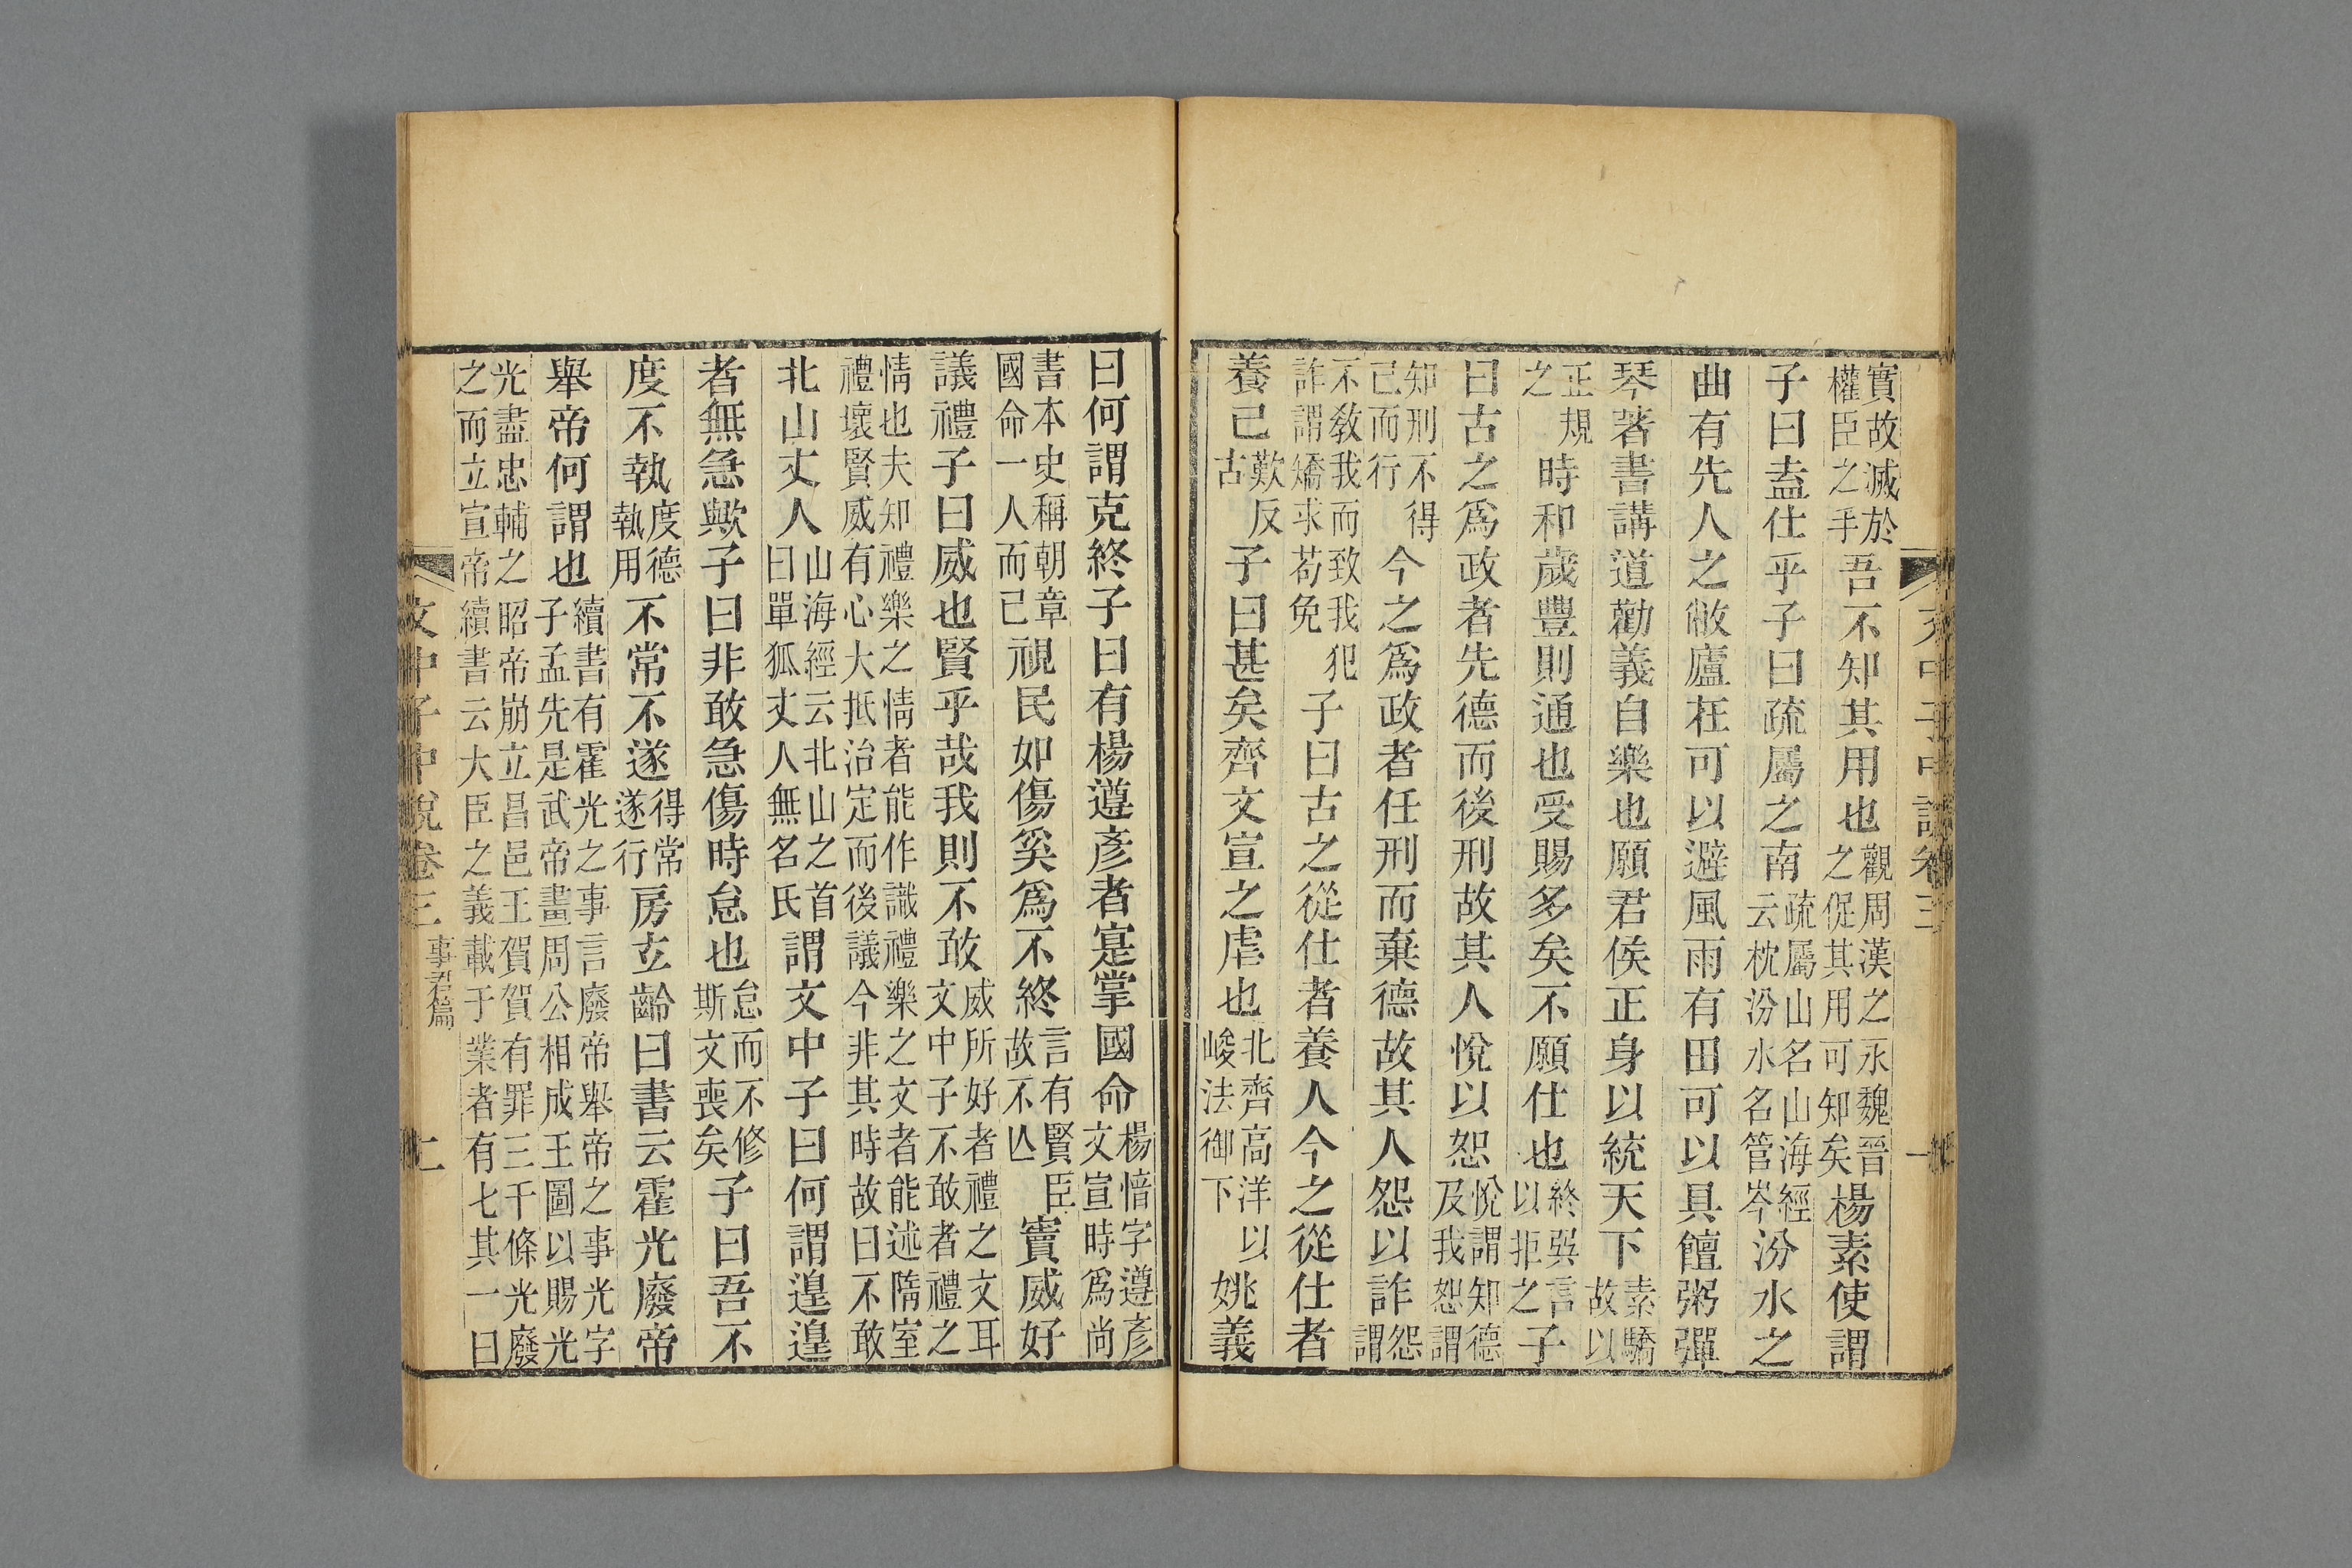 文中子中說卷三
實故滅於權臣之手吾不知其用也觀周漢之永魏晉之促其用可知矣楊素使謂
子曰盍仕乎子曰疏屬之南疏屬山名山海經云枕汾水名管岑汾水之
曲有先人之敝廬在可以避風雨有田可以具饘粥彈
琴著書講道勸義自樂也願君侯正身以統天下素驕故以
正規之時和歲豐則通也受賜多矣不願仕也終巽言以拒之子
曰古之爲政者先德而後刑故其人悅以恕悅謂知德及我恕謂
知刑不得已而行今之爲政者任刑而棄德故其人怨以詐怨謂
不敎我而致我犯詐謂矯求苟免子曰古之從仕者養人今之從仕者
養己歎反古子曰甚矣齊文宣之虐也北齊高洋以峻法御下姚義
曰何謂克終子曰有楊遵彥者寔掌國命楊愔字遵彥文宣時爲尚
書本史稱朝章國命一人而已視民如傷奚爲不終言有賢臣故不亾竇威好
議禮子曰威也賢乎哉我則不敢威所好者禮之文耳文中子不敢者禮之
情也夫知禮樂之情者能作識禮樂之文者能述隋室禮壞賢威有心大抵治定而後議今非其時故曰不敢
北山丈人山海經云北山之首曰單狐丈人無名氏謂文中子曰何謂遑遑
者無急歟子曰非敢急傷時怠也怠而不修斯文喪矣子曰吾不
度不執度德執用不常不遂得常遂行房玄齡曰書云霍光廢帝
舉帝何謂也續書有霍光之事言廢帝舉帝之事光字子孟先是武帝畫周公相成王圖以賜光
光盡忠輔之昭帝崩立昌邑王賀賀有罪三千條光廢之而立宣帝續書云大臣之義載于業者有七其一曰
文中子中說卷三 事君篇 七